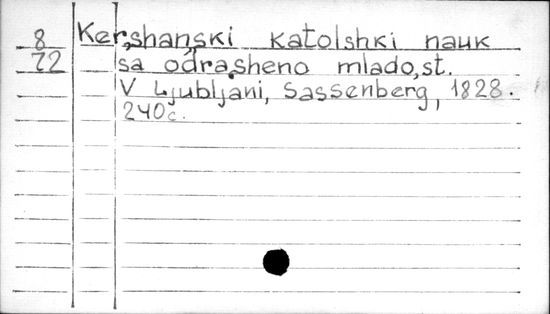 8 Kerşhanşki katolshki nauk
72 sa odraşheno mlado,st.
V Ljubljani, Sassenberg, 1828.
240c.